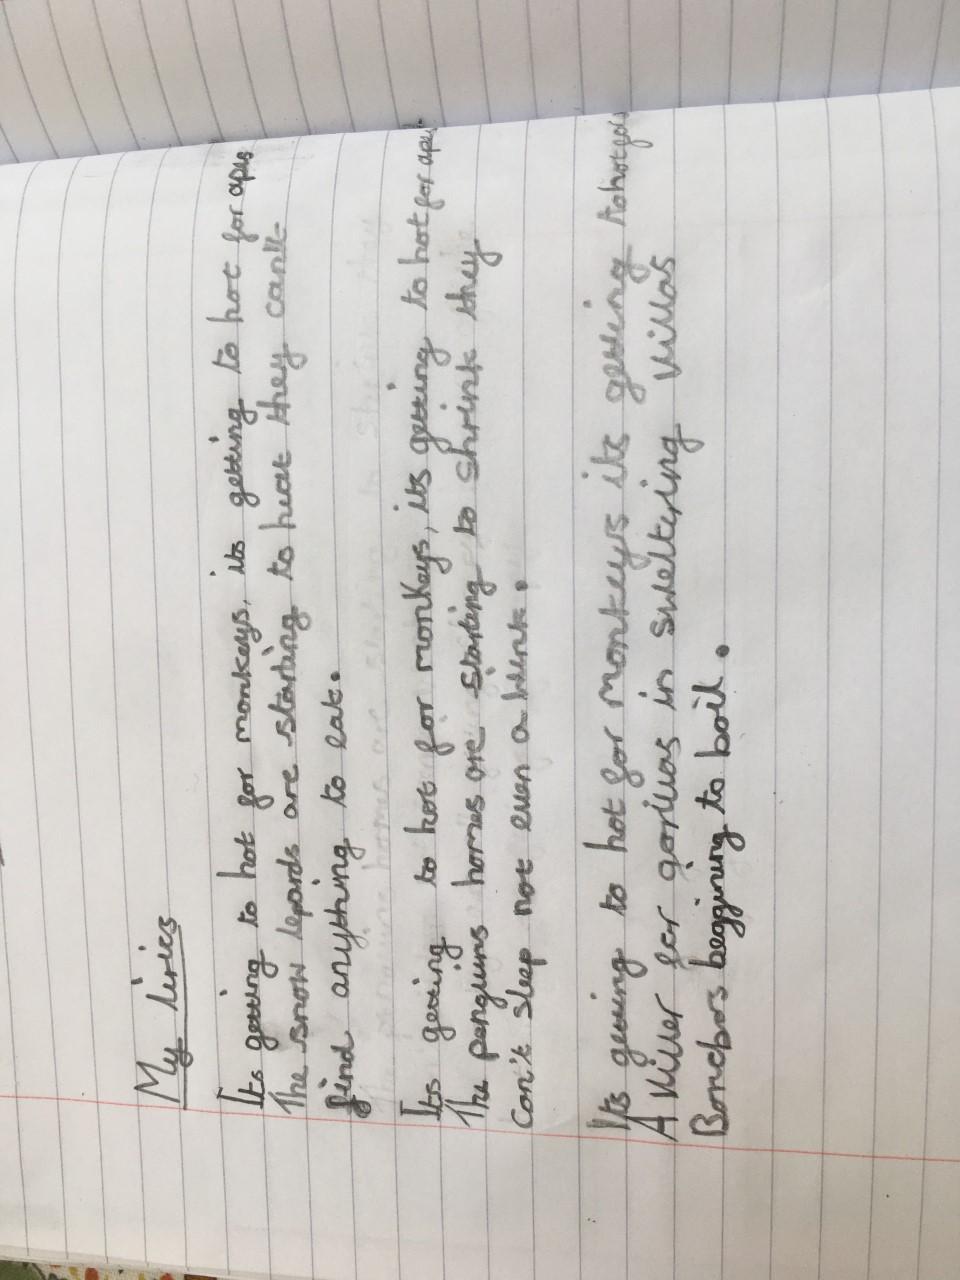 My lirics
Its getting to hot for monkeys, its getting to hot for apes
The snow lepards are starting to heat they can't
find anything to eat.
Its getting to hot for monkeys, its getting to hot for apes
The penguins homes are starting to shrink they
Con't sleep not even a blink.
Its getting to hot for monkeys its getting to hot for
A killer for gorillas in sweltering villas
Bonobos beggining to boil.